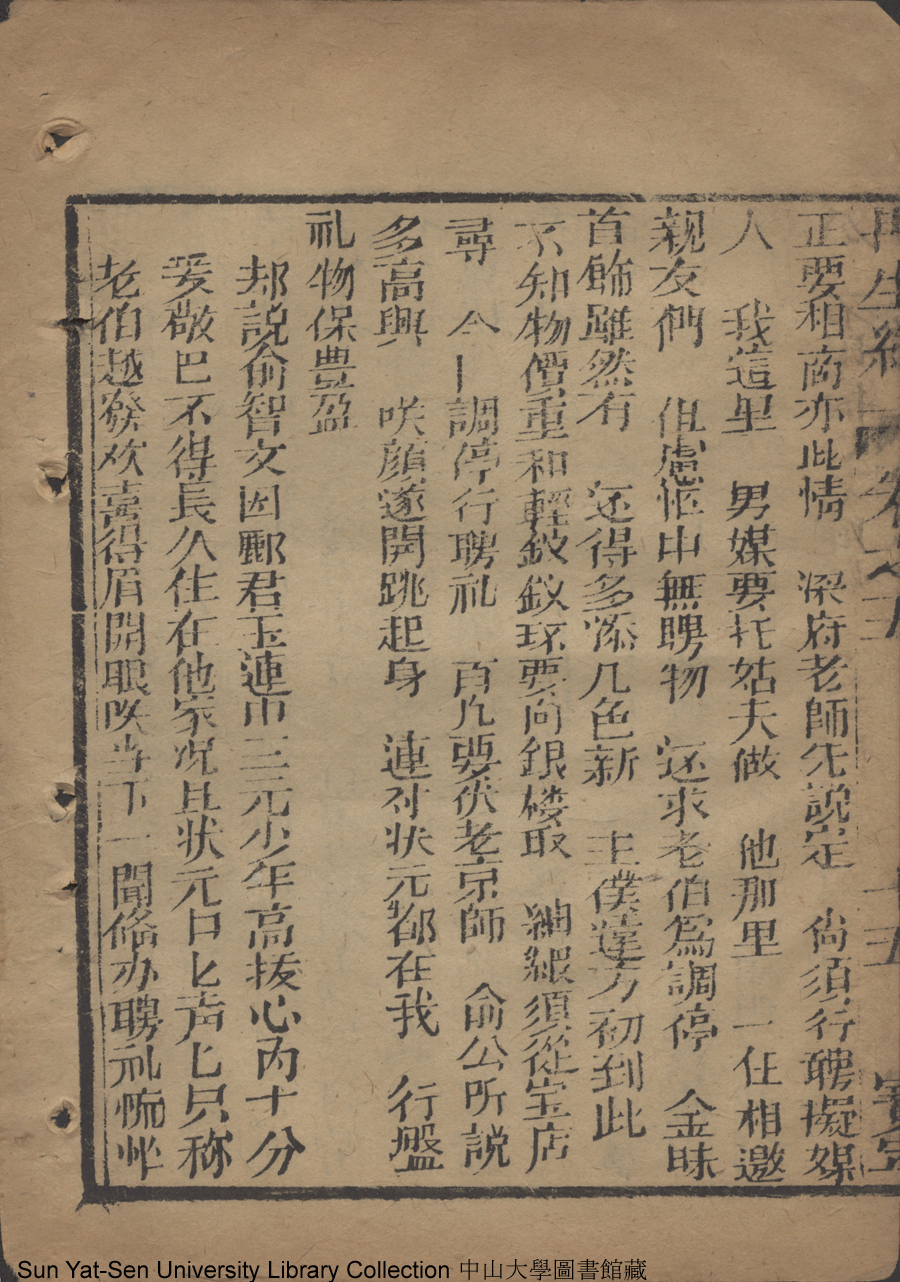 再生緣 卷之五 十五 寶
正要相商亦此情 梁府老師先説定 尙須行聘擬媒
人 我這里 男媒要托姑夫做 他那里 一任相邀
親友們 但慮 中無聘物 还求老伯爲調停 金珠
首飾雖然有 还得多添几色新 主僕遠方初到此
不知物價重和輕釵釧环要向銀楼取 紬緞須從宝店
尋 今丨調停行聘礼 百凡要伏老京師 俞公所説
多高興 咲顔遂開跳起身 連対状元都在我 行盤
礼物保豊盈
却説俞智文因酈君玉連中三元少年高拔心内十分
爱敬巴不得長久住在他家况且状元口匕声匕只称
老伯越發欢喜得眉開眼咲当下一聞俻办聘礼